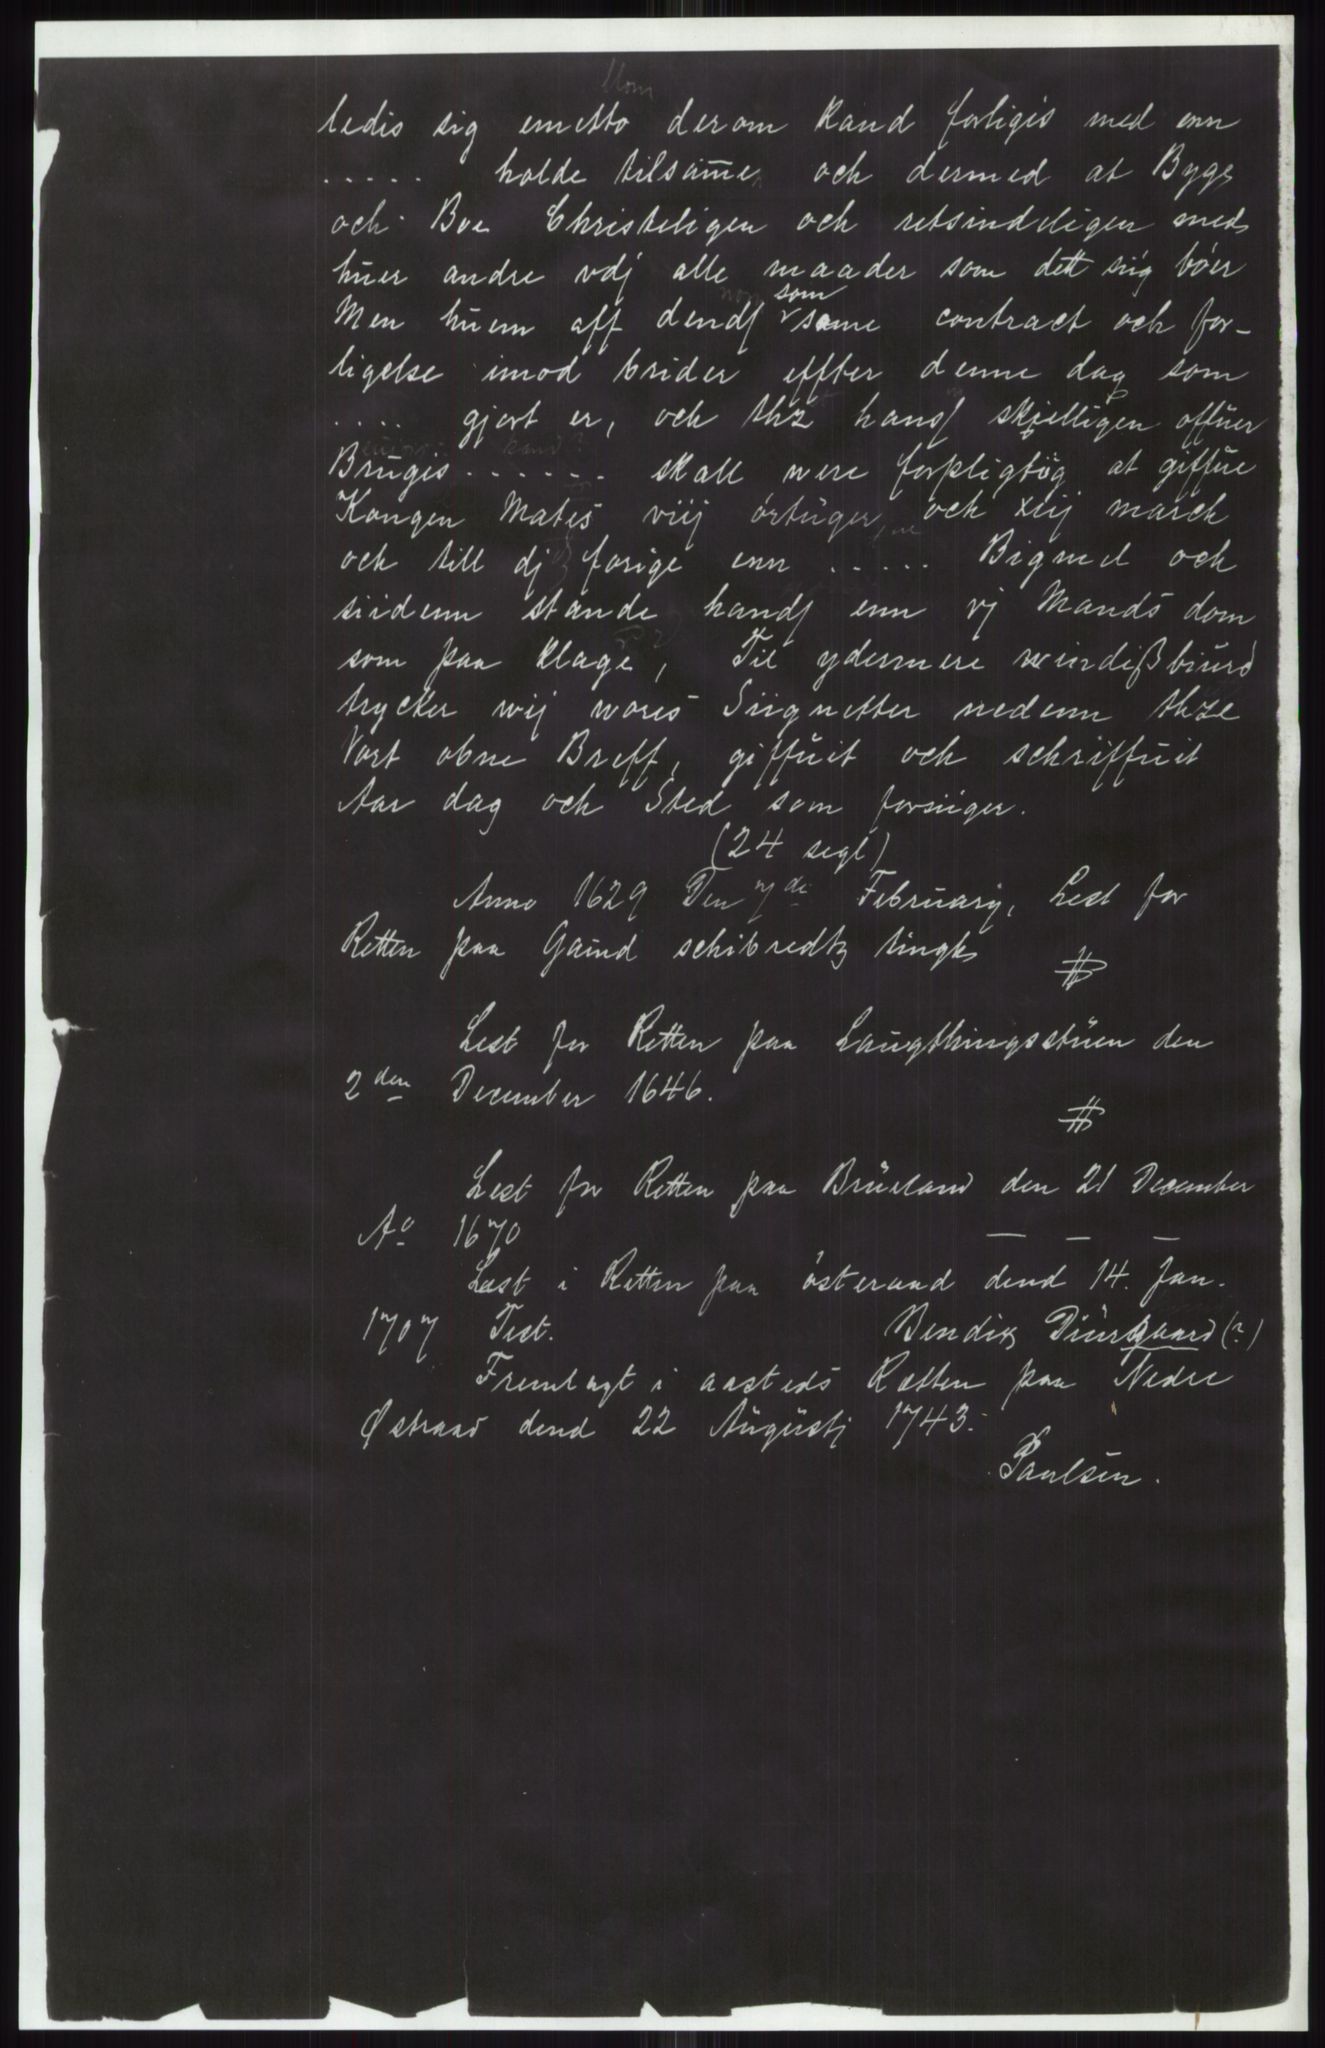 ledis sig emetto derom kand forligis med enn
..... holde tilsam̄en och dermed at Byge
och Boe Christeligen och retsindeligen med
hŭer andre vdj alle maader som dett siig bóer
Men hŭem aff dend som same contract och for-
ligelse imod brider effter denne dag som
.... gjort er, och thz hans skielligen offŭer
Brŭges ...... skall were forpligtög at giffŭe
Kongen Mates viij órtŭger och xiij march
och till dj forige enn ..... Bigmel och
siidenn stande hands enn vj Mands dom
som paa klage, Til ydermere windißbiŭrd
trycker wij wores Siignetter nedenn thze
Vort obne Breff, giffŭit och schriffŭit
Aar dag och Sted som forsiiger.
(24 segl)
Anno 1629 Den 7de Februarij, Lest for
Retten paa Gaŭnd schibredtz tingh
Lest for Retten paa Laŭgthingsstŭen den
2den December 1646.
Lest for Retten paa Brŭeland den 21 December
Ao 1670 — — —
Læst i Retten paa österaad dend 14. Jan.
1707 Test. Bendix Diŭrgaard (?)
Fremlagt i aasteds Rætten paa Nedre
Østraad dend 22 Aŭgŭstj 1743.
Paŭlsen.